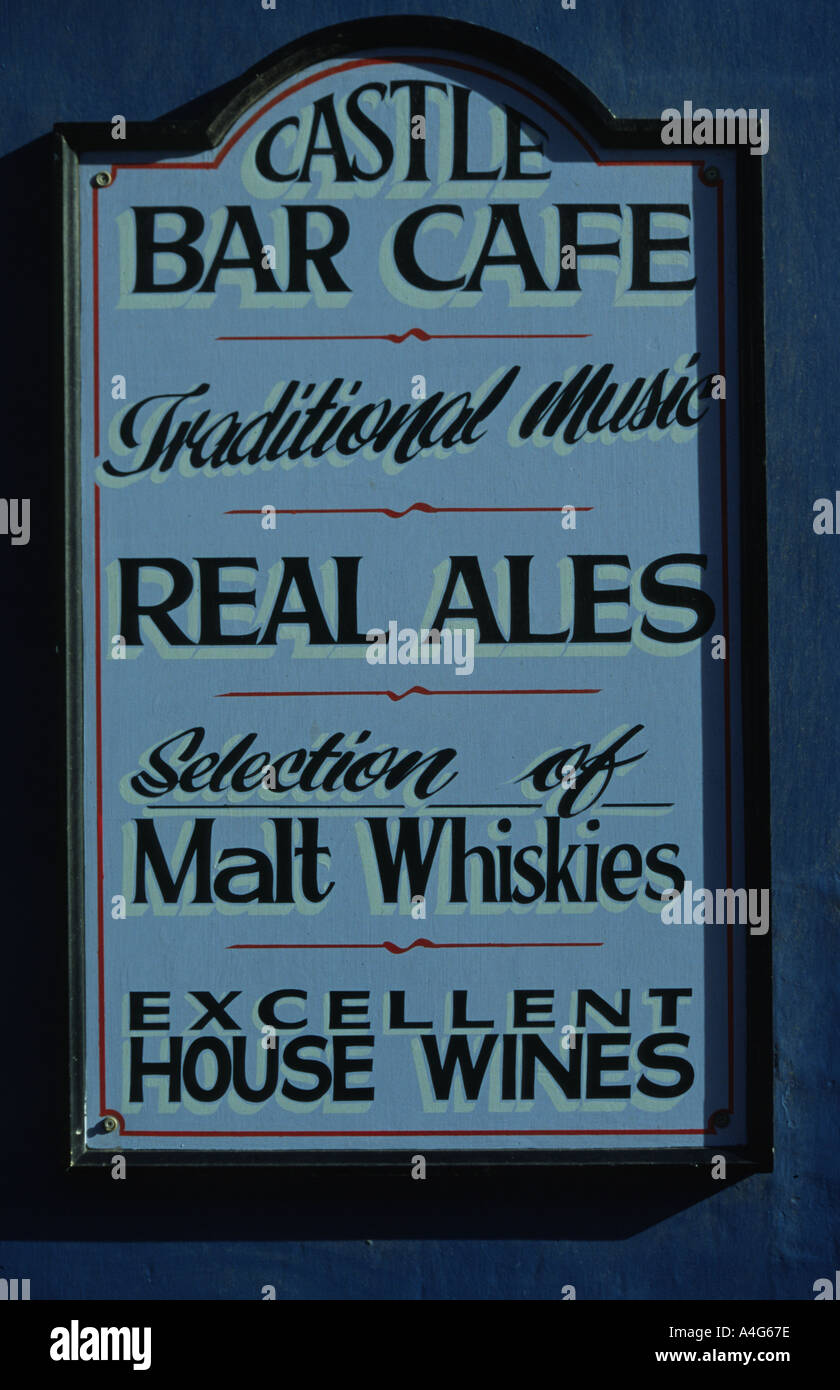 CASTLE
BAR CAFE
Traditional Music
REAL ALES
Selection of
Malt Whiskies
EXCELLENT
HOUSE WINES
alamy
alamy
Image ID: A4G67E
www.alamy.com